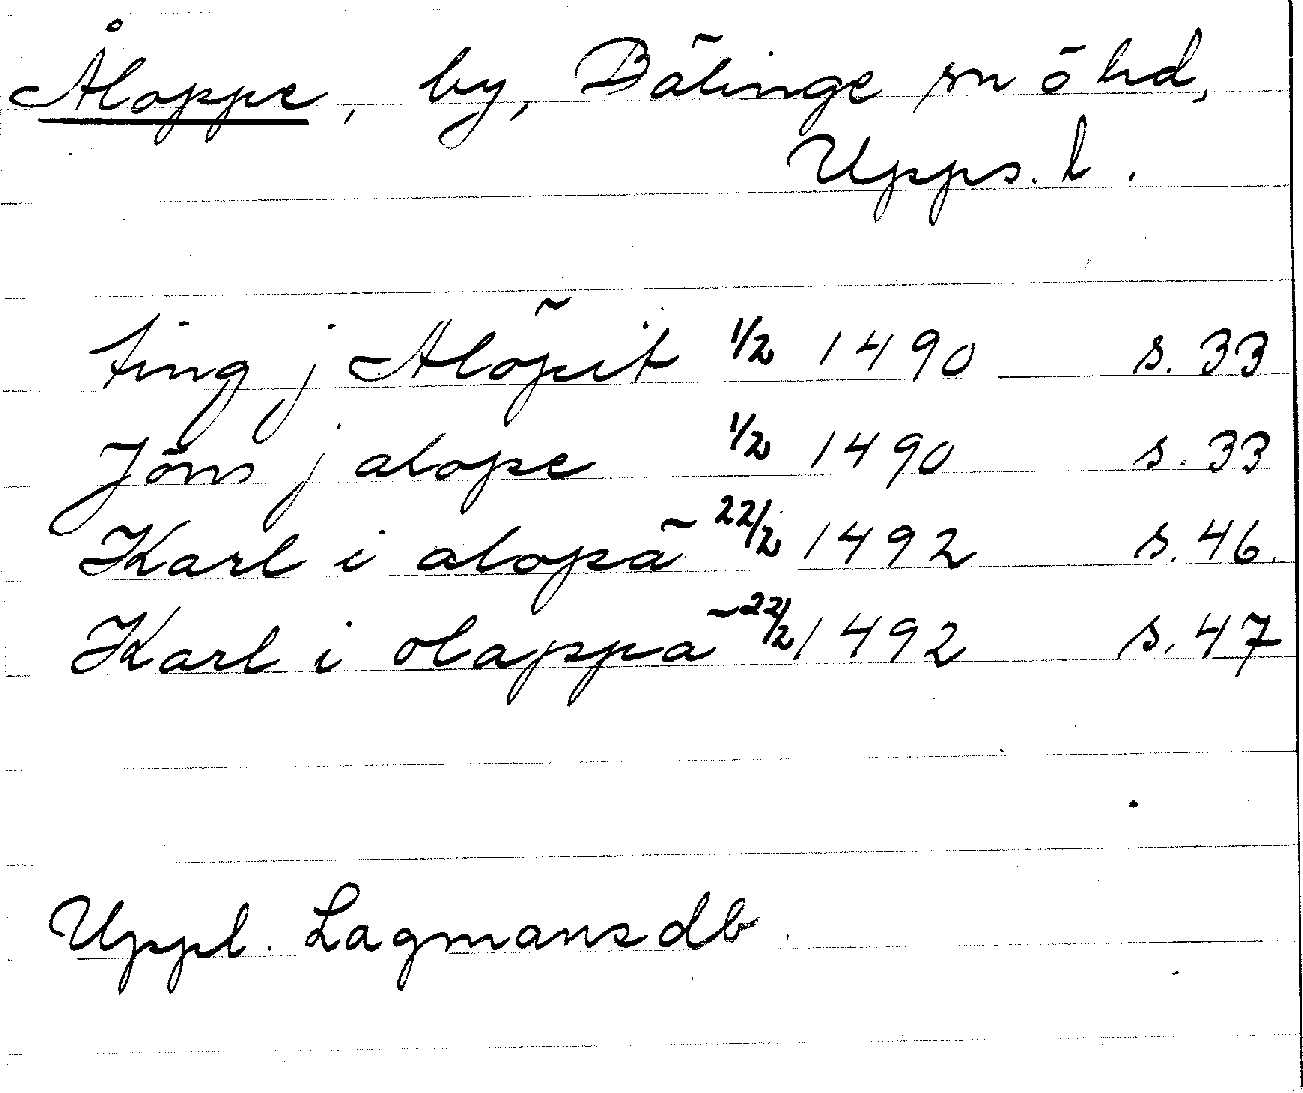 Åloppe, by, Bälinge sn o hd,
Upps. l.
ting j Alöpit 1/2 1490 s. 33
Jöns j alope 1/2 1490 s. 33
Karl i alopä 22/2 1492 s. 46.
Karl i olappa 22/2 1492 s. 47
Uppl. Lagmansdb.